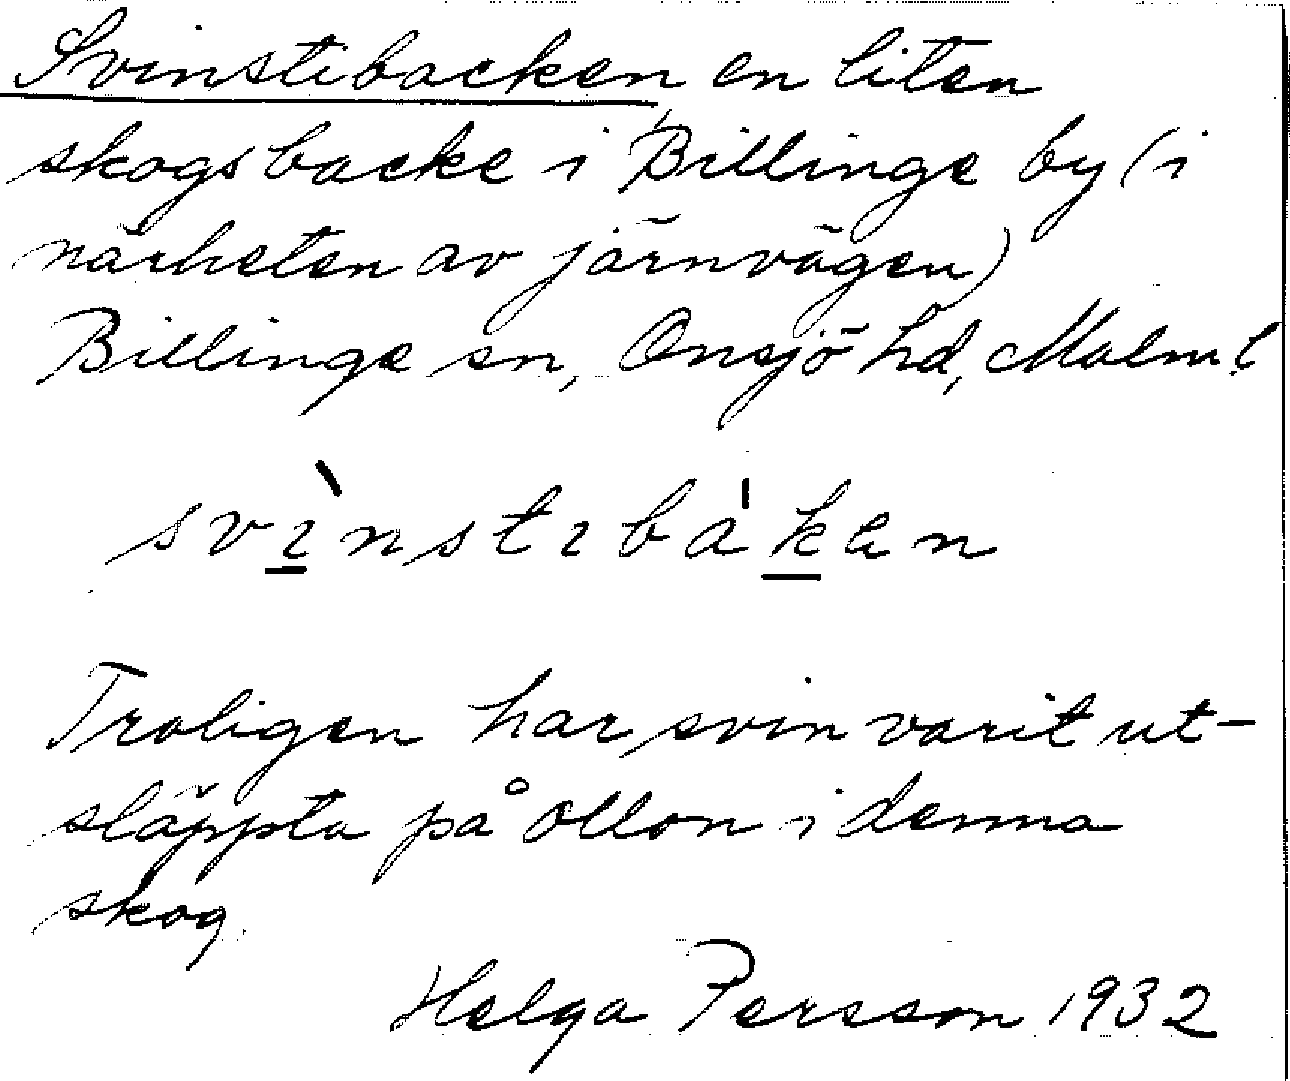 Svinstibacken, en liten
skogsbacke i Billinge by (i
närheten av järnvägen)
Billinge sn, Onsjö hd, Malm l
svìnstıbák̲en
Troligen har svin varit ut-
släppta på ollon i denna
skog.
Helga Persson 1932